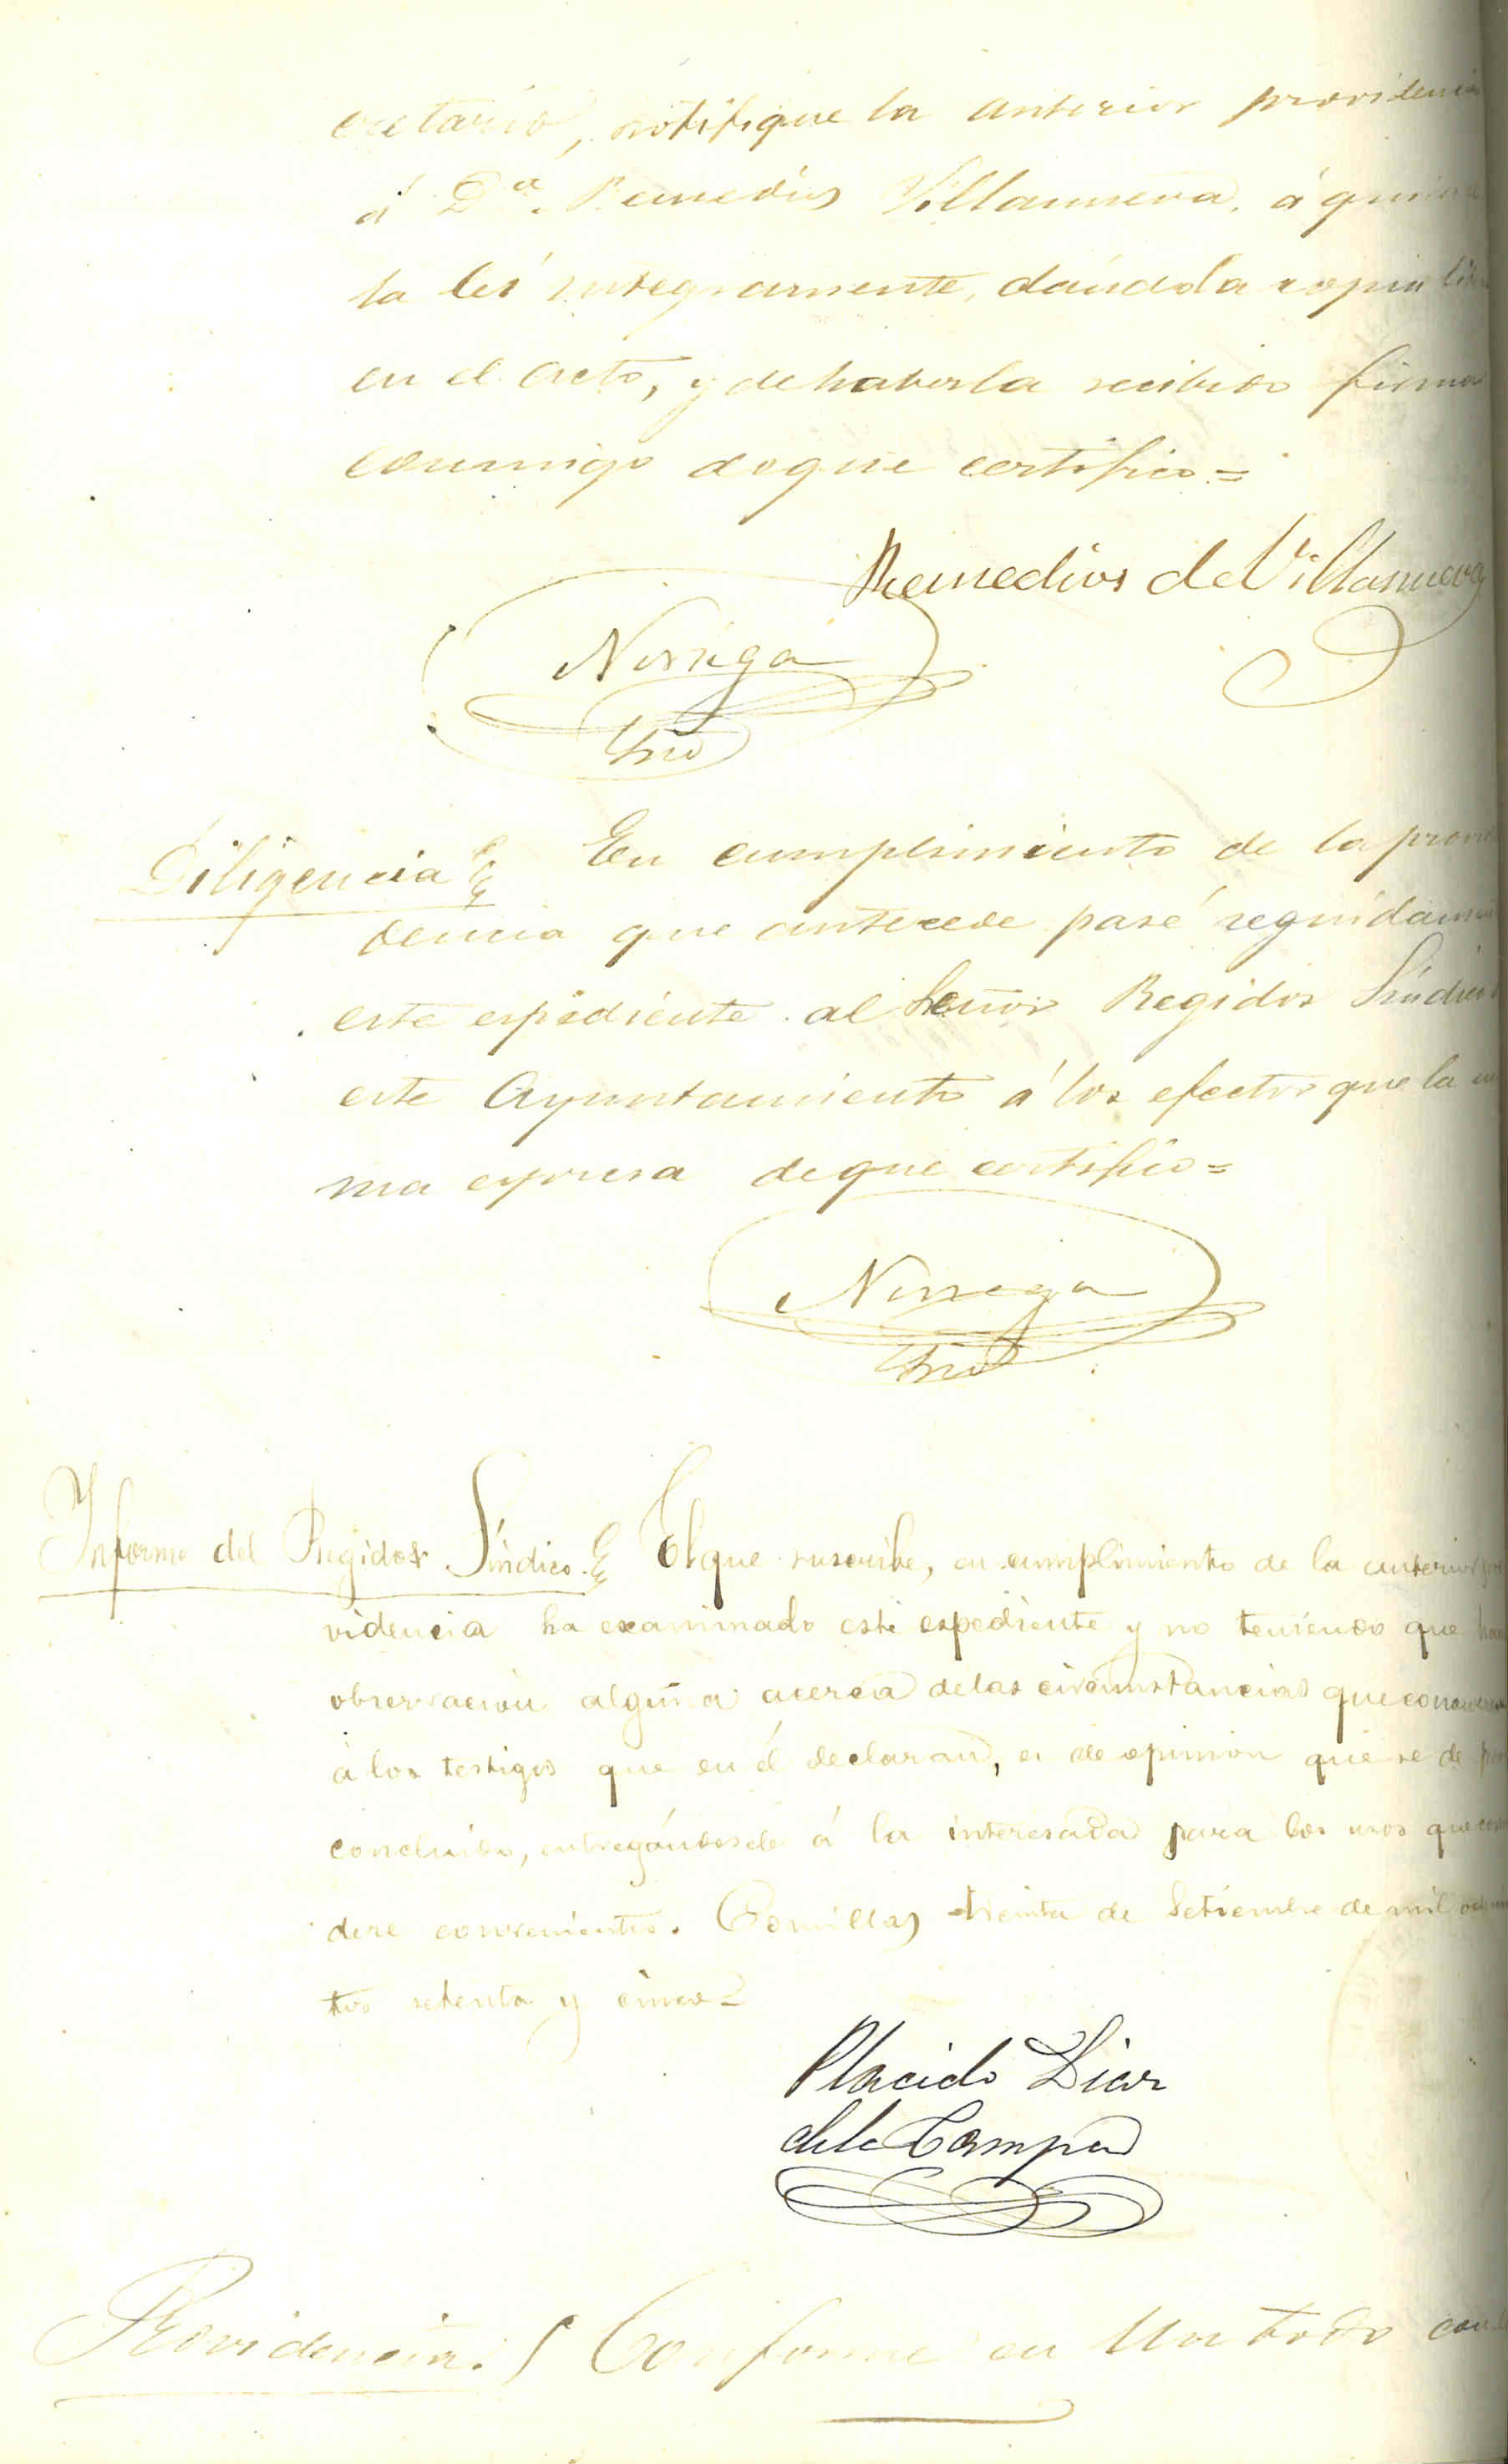 cretario, notifiqué la anterior providencia
á Dª. Remedios Villanueva, á quien
la leí integramente, dándola copia
en el acto, y de haberla recibido firma
conmigo deque certifico=
Remedios de Villanueva
Noriega
Srio
Diligencia En cumplimiento de la provi
dencia que antecede pasé seguidamente
este espediente al Señor Regidor Síndico
este Ayuntamiento á los efectos que la
ma espresa deque certifico=
Noriega
Srio
Informe del Regidor Síndico. El que suscribe, en cumplimiento de la anterior pro
videncia ha examinado este espediente y no teniendo que
observacion alguna acerca delas circunstancias que concurren
á los testigos que en él declaran, es de opinion que se dé por
concluido, entregándosele á la interesada para los usos que
dere convenientes. Comillas treinta de Setiembre de mil ochocien
tos setenta y cinco=
Placido Diaz
dela Campa
Providencia. Conforme en un todo con